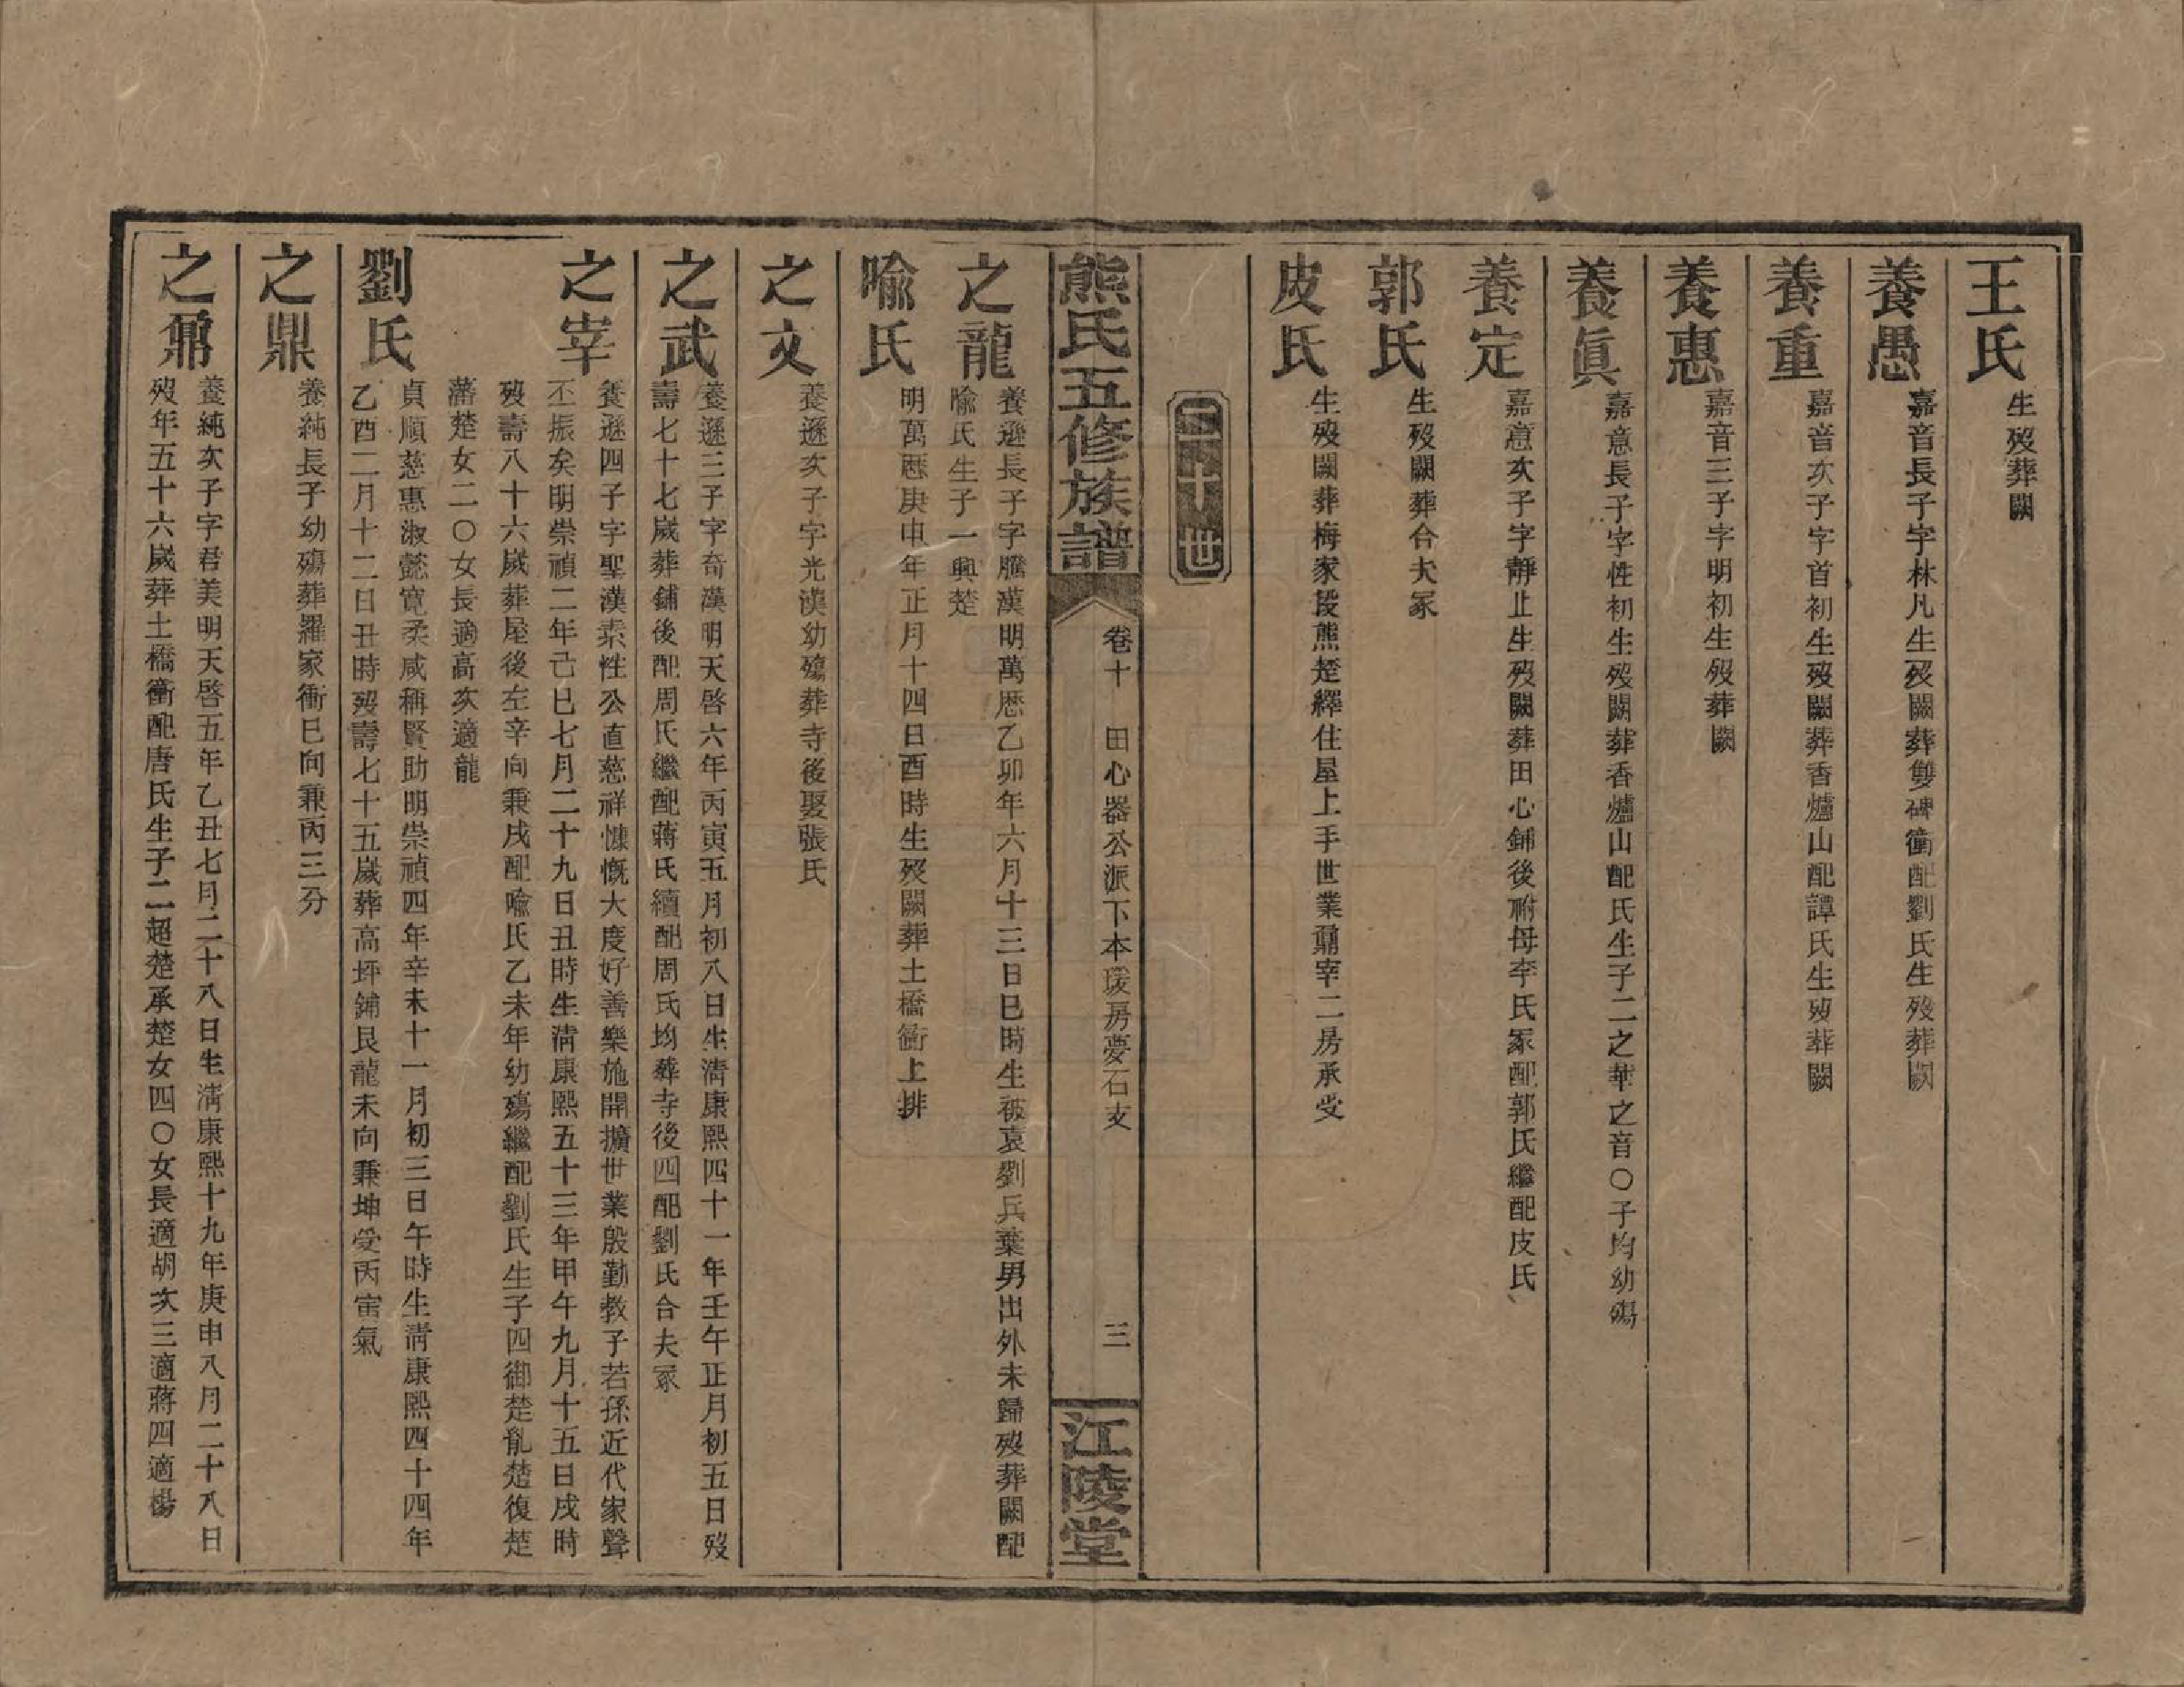 王氏
生歿葬闕
養愚
嘉音長子字林凡生歿闕葬雙碑衝配劉氏生歿葬闕
養重
嘉音次子字首初生歿闕葬香爐山配譚氏生歿葬闕
養惠
嘉音三子字明初生歿葬闕
養眞
嘉意長子字性初生歿闕葬香爐山配氏生子二之華之音〇子均幼殤
養定
嘉意次子字靜止生歿闕葬田心鋪後祔母李氏冢配郭氏繼配皮氏
郭氏
生歿闕葬合夫冢
皮氏
生歿闕葬梅家段熊楚繹住屋上手世業鼐宰二房承受
二十世
熊氏五修族譜
卷十 田心器公派下本瑗房夢石支 三
江陵堂
之龍
養遜長子字騰漢明萬歷乙卯年六月十三日巳時生被袁劉兵棄男出外未歸歿葬闕配
喻氏生子一興楚
喻氏
明萬歷庚申年正月十四日酉時生歿闕葬土橋衝上排
之文
養遜次子字光漢幼殤葬寺後娶張氏
之武
養遜三子字奇漢明天啓六年丙寅五月初八日生清康熙四十一年壬午正月初五日歿
壽七十七歲葬鋪後配周氏繼配蔣氏續配周氏均葬寺後四配劉氏合夫冢
之宰
養遜四子字聖漢素性公直慈祥慷慨大度好善樂施開擴世業殷勤教子若孫近代家聲
丕振矣明崇禎二年己巳七月二十九日丑時生清康熙五十三年甲午九月十五日戌時
歿壽八十六歲葬屋後左辛向兼戌配喻氏乙未年幼殤繼配劉氏生子四御楚亂楚復楚
藩楚女二〇女長適高次適龍
劉氏
貞順慈惠淑懿寬柔咸稱賢助明崇禎四年辛未十一月初三日午時生清康熙四十四年
乙酉二月十二日丑時歿壽七十五歲葬高坪鋪艮龍未向兼坤受丙甯氣
之鼎
養純長子幼殤葬羅家衝巳向兼丙三分
之鼐
養純次子字君美明天啓五年乙丑七月二十八日生清康熙十九年庚申八月二十八日
歿年五十六歲葬土橋衝配唐氏生子二超楚承楚女四〇女長適胡次三適蔣四適楊